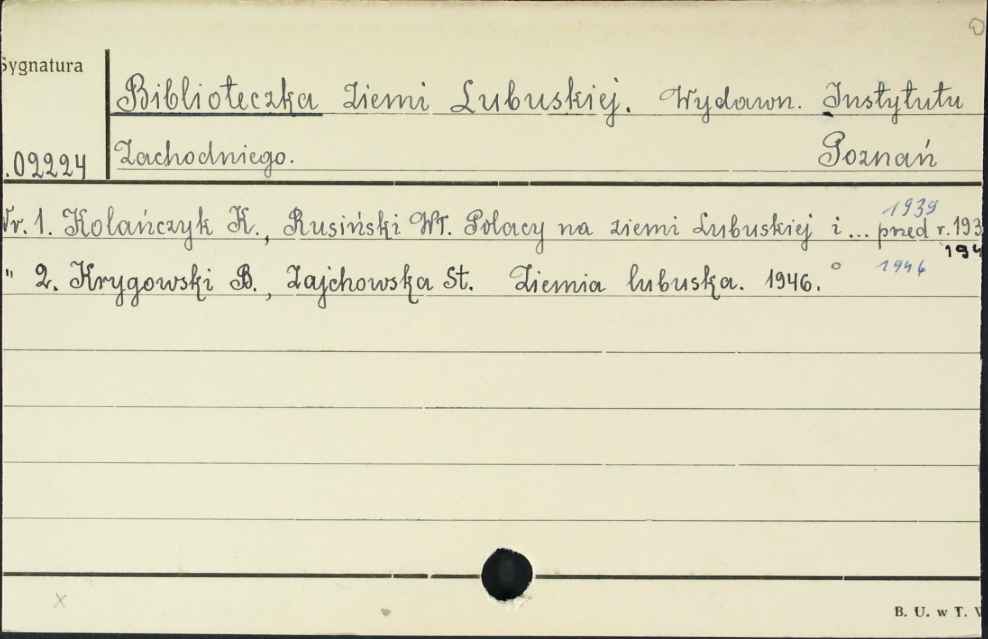 Sygnatura
Biblioteczka Ziemi Lubuskiej. Wydawn. Instytutu
.02224 Zachodniego. Poznań
1939
Nr. 1. Kolańczyk K., Rusiński Wł. Polacy na ziemi Lubuskiej i ... przed r. 193
194
" 2. Krygowski B., Zajchowska St. Ziemia lubuska. 1946. 1946
B. U. w T.